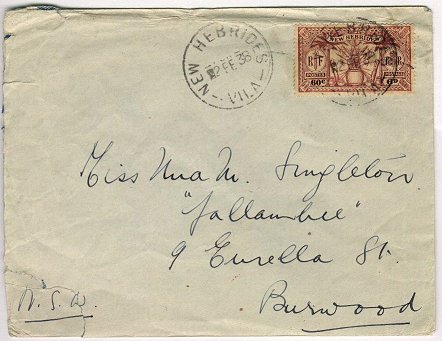 NEW HEBRIDES
22 FE 38
VILA
NEW HEBRIDES
RF
POSTES
60c 6D
Miss Una M. Singleton
"Jallambee"
9 Eurella St.
Burwood
N.S.W.